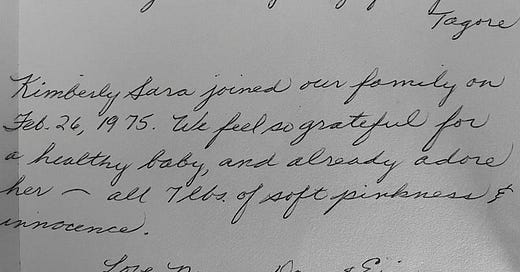 Tagore
Kimberly Sara joined our family on
Feb. 26, 1975. We feel so grateful for
a healthy baby, and already adore
her — all 7 lbs. of soft pinkness &
innocence.
Love